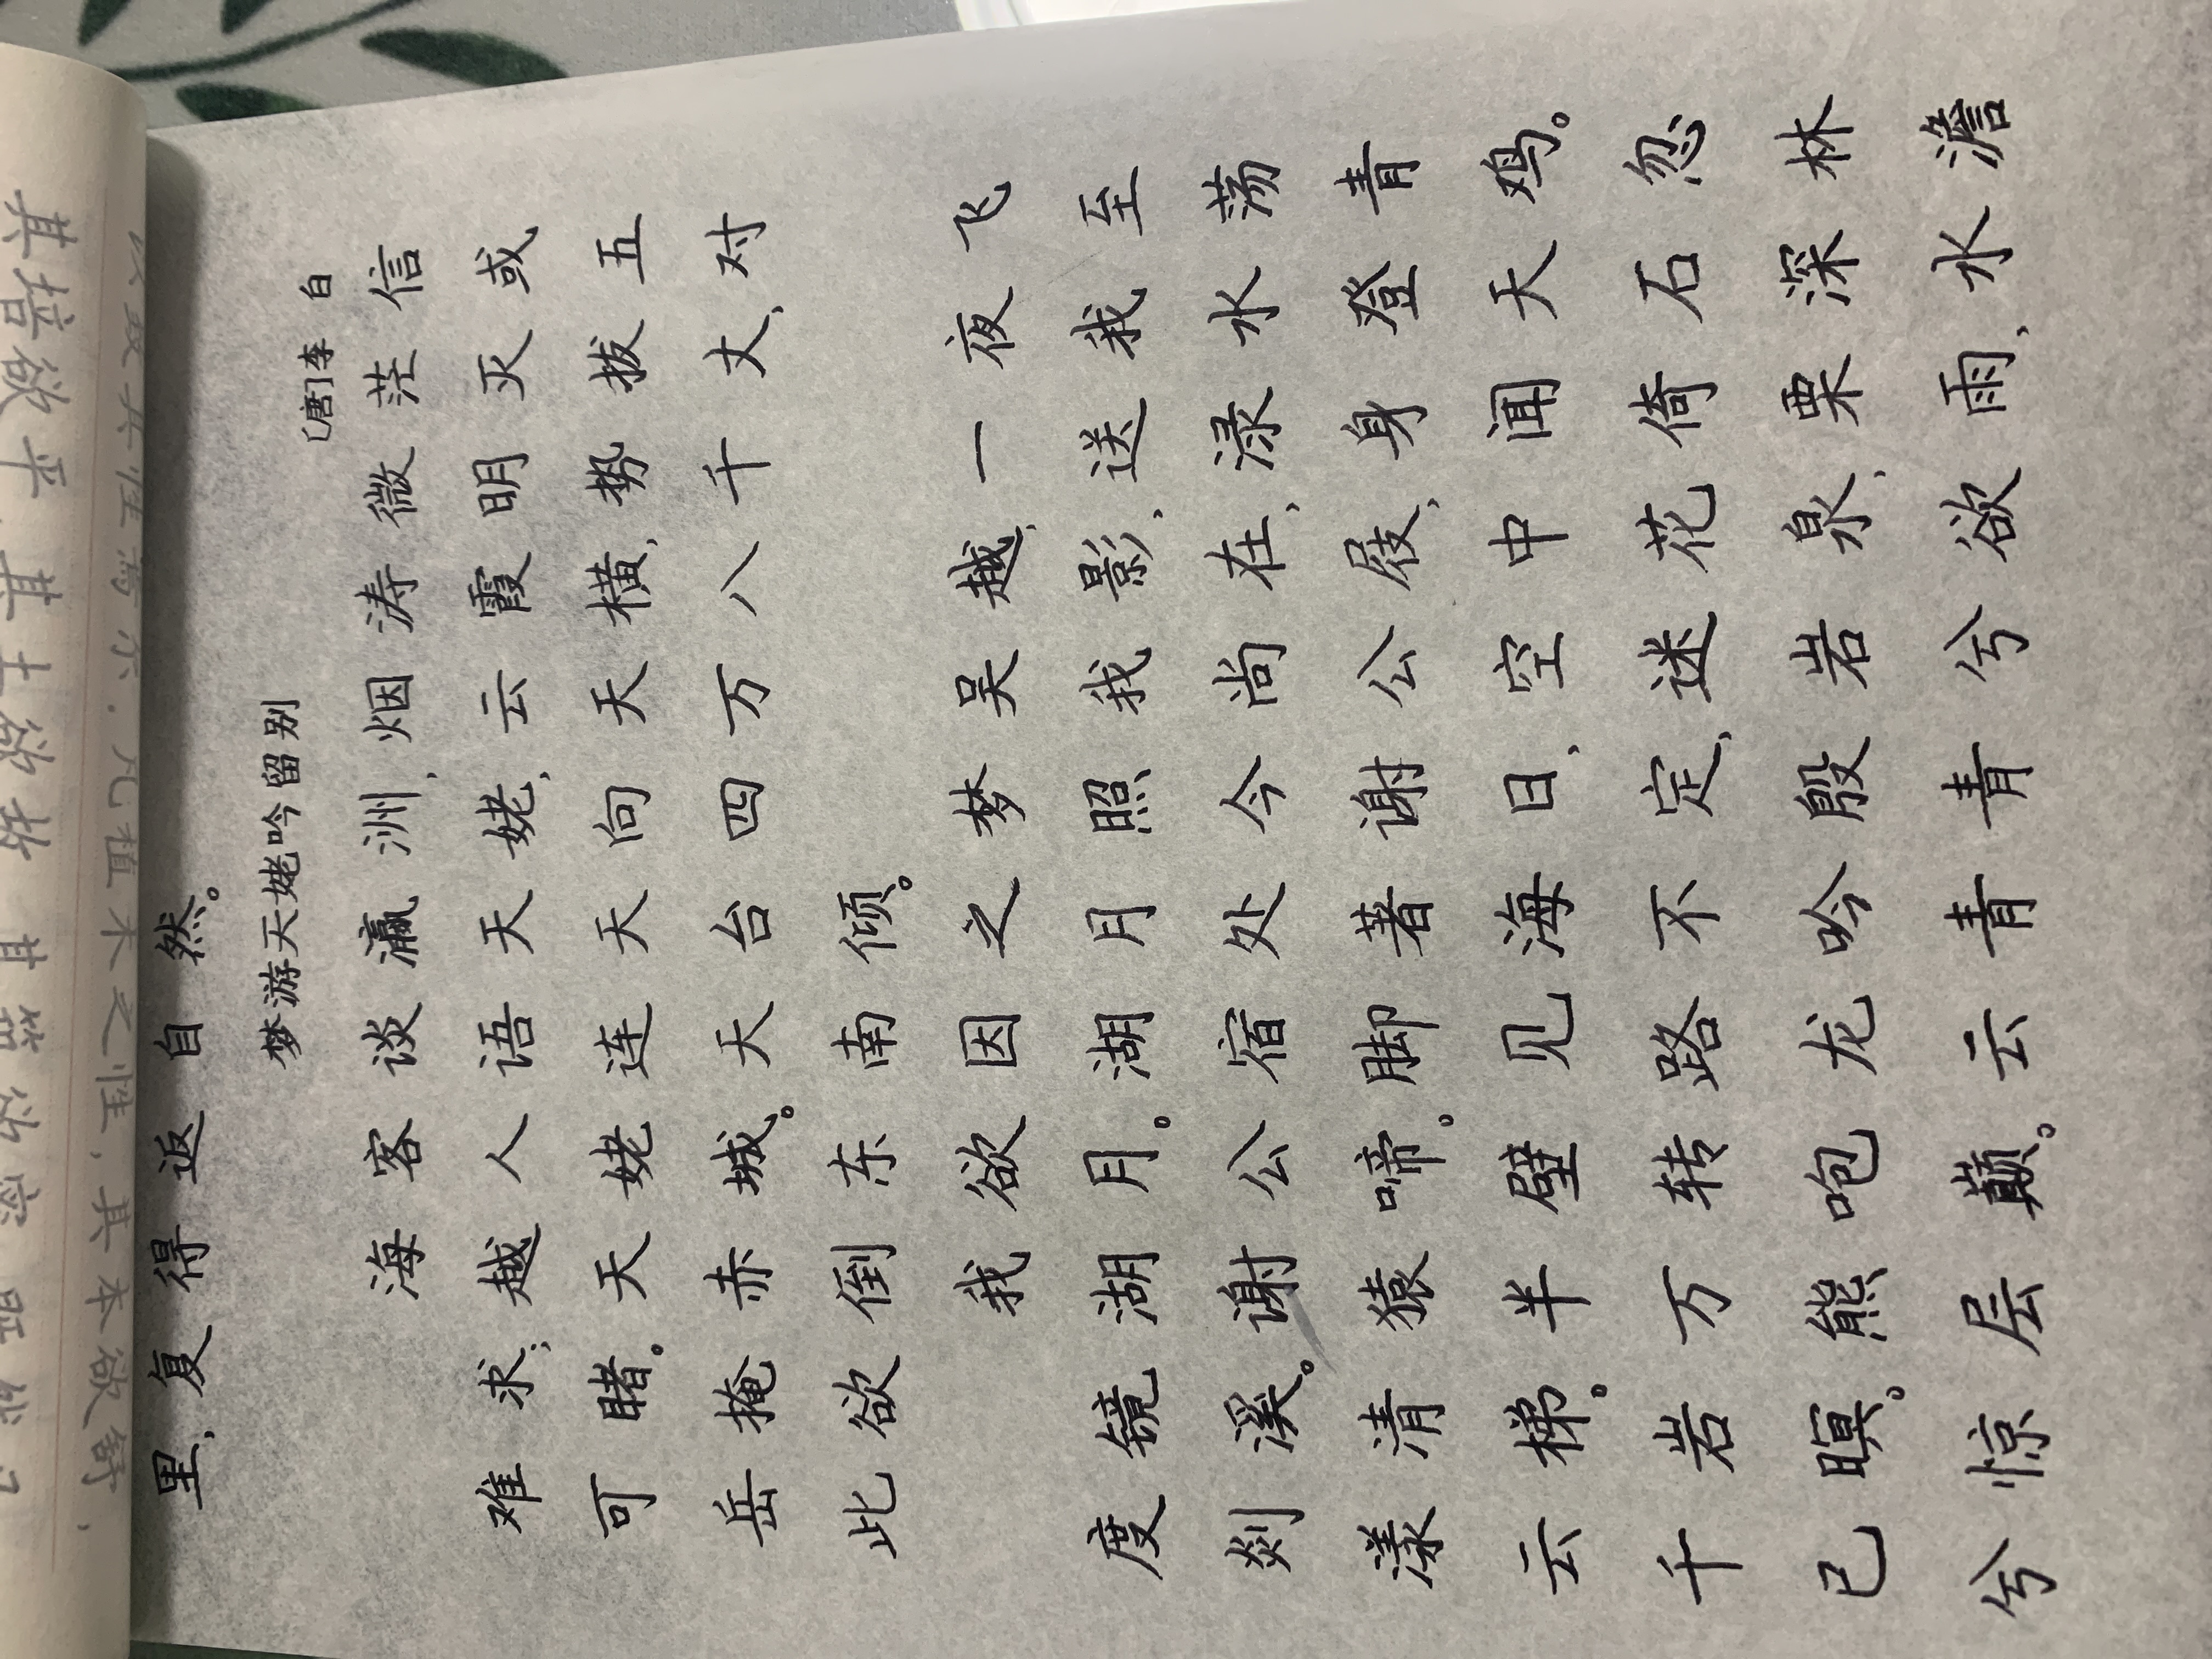 里，复得返自然。
梦游天姥吟留别
〔唐〕李白
海客谈瀛洲，烟涛微茫信
难求；越人语天姥，云霞明灭或
可睹。天姥连天向天横，势拔五
岳掩赤城。天台四万八千丈，对
此欲倒东南倾。
我欲因之梦吴越，一夜飞
度镜湖月。湖月照我影，送我至
剡溪。谢公宿处今尚在，渌水荡
漾清猿啼。脚著谢公屐，身登青
云梯。半壁见海日，空中闻天鸡。
千岩万转路不定，迷花倚石忽
已暝。熊咆龙吟殷岩泉，栗深林
兮惊层巅。云青青兮欲雨，水澹